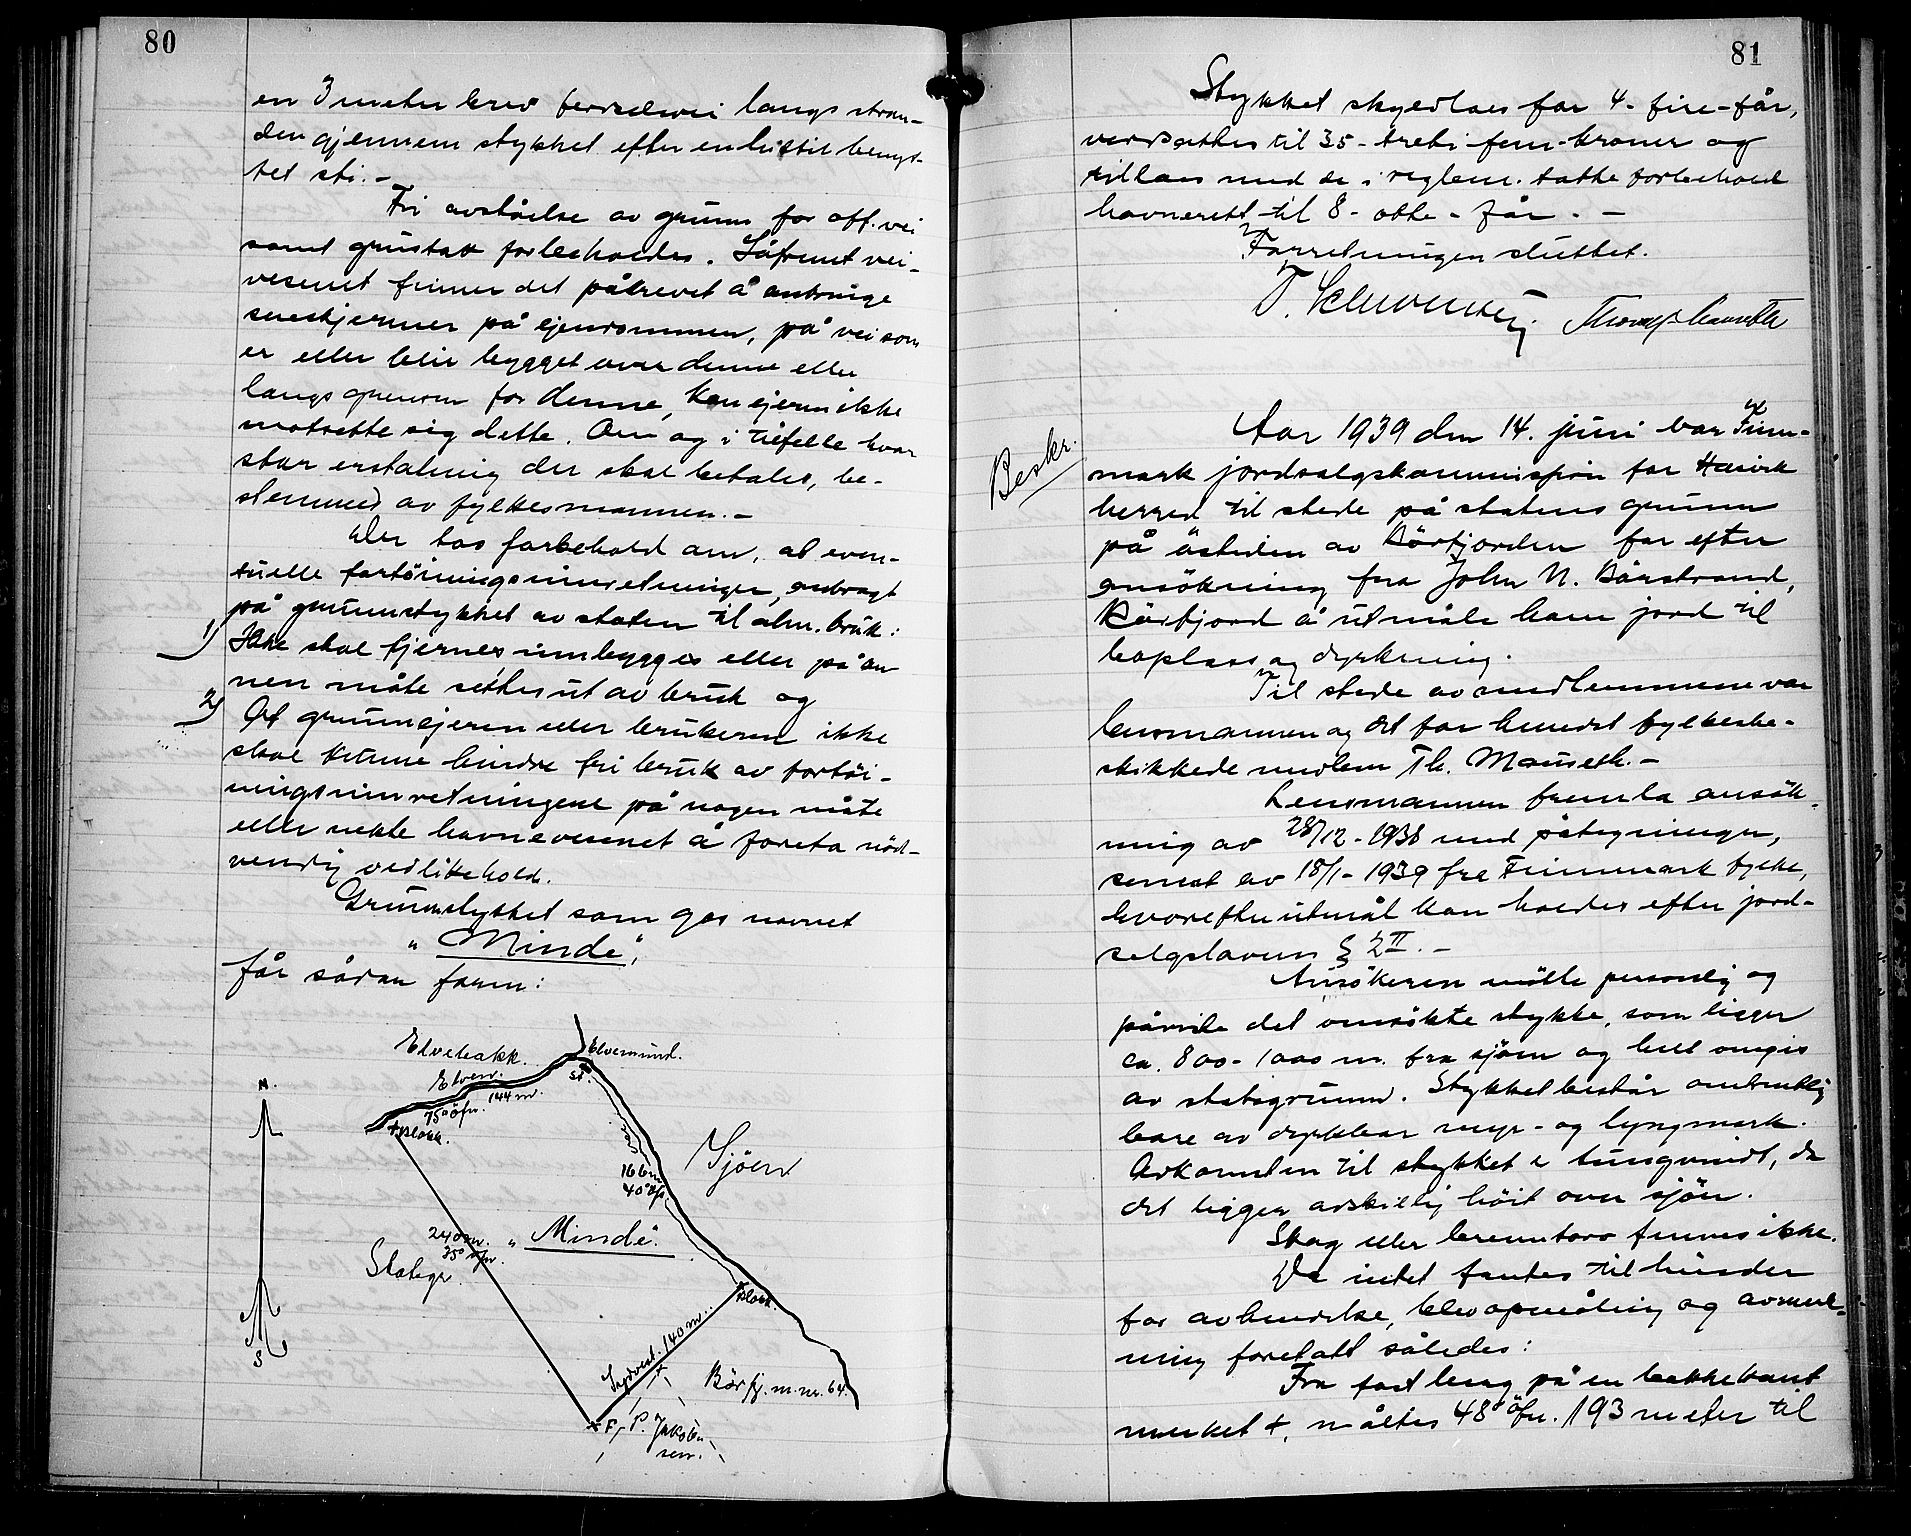 80
en 3 meter bred ferdselsvei langs stran-
den gjennem stykket efter en hittil benyt-
tet sti.-
Fri avståelse av grunn for off. vei
samt grustak forbeholdes. Såfremt vei-
vesenet finner det påkrevet å anbringe
sneskjermer på ejendommen, på vei som
er eller blir bygget over denne eller
langs grensen for denne, kan ejeren ikke
motsette sig dette. Om og i tilfelle hvor
stor erstatning der skal betales, be-
stemmes av fylkesmannen.-
Der tas forbehold om, at even-
tuelle fortöiningsinnretninger, anbragt
på grunnstykket av staten til alm. bruk:
1) Ikke skal fjernes innbygges eller på an
nen måte settes ut av bruk og
2) At grunnejeren eller brukeren ikke
skal kunne hindre fri bruk av fortöi-
ningsinnretningene på nogen måte
eller nekte havnevesenet å foreta nöd-
vendig vedlikehold.
Grunnstykket som gis navnet
"Minde",
får sådan form:
Elvebakk.
Elvemund.
Elven.
st.
N.
75° öfn.
144 m.
+ blokk.
Sjöen
166 m
40° öfs.
240 m.
35° vfn.
"Minde".
Statsgr.
+ blokk.
S
Sydvest. 140 m.
Börfj. m.nr. 64.
P. Jakob
sen.
81
Stykket skyldlaes for 4 - fire - får,
verdsettes til 35 - tretti fem - kroner og
tillaes med de i reglem. tatte forbehold
havnerett til 8 - otte - får. -
Forretningen sluttet.
Beskr.
Aar 1939 den 14. juni var Finn-
mark jordsalgskommisjon for Hasvik
herred til stede på statens grunn
på östsiden av Börfjorden for efter
ansökning fra John N. Bårstrand,
Börfjord å utmåle ham jord til
boplass og dyrkning.
Til stede av medlemmene var
lensmannen og det for herredet fylkesbe-
skikkede medlem Th. Mauseth.-
Lensmannen fremla ansök-
ning av 28/12 - 1938 med påtegninger,
senest av 18/1 - 1939 fra Finnmark fylke,
hvorefter utmål kan holdes efter jord-
salgslovens § 2 II.-
Ansökeren mötte personlig og
påviste det omsökte stykke, som ligger
ca. 800 - 1000 m. fra sjöen og helt omgis
av statsgrunn. Stykket består omtrentlig
bare av dyrkbar myr- og lyngmark.
Adkomsten til stykket er tungvindt, da
det ligger adskillig höit over sjöen.
Skog eller brenntorv finnes ikke.
Da intet fantes til hinder
for avhendelse, blev opmåling og avmerk-
ning foretatt således:
Fra fast berg på en bakkekant
merket +, måltes 48° öfn. 193 meter til